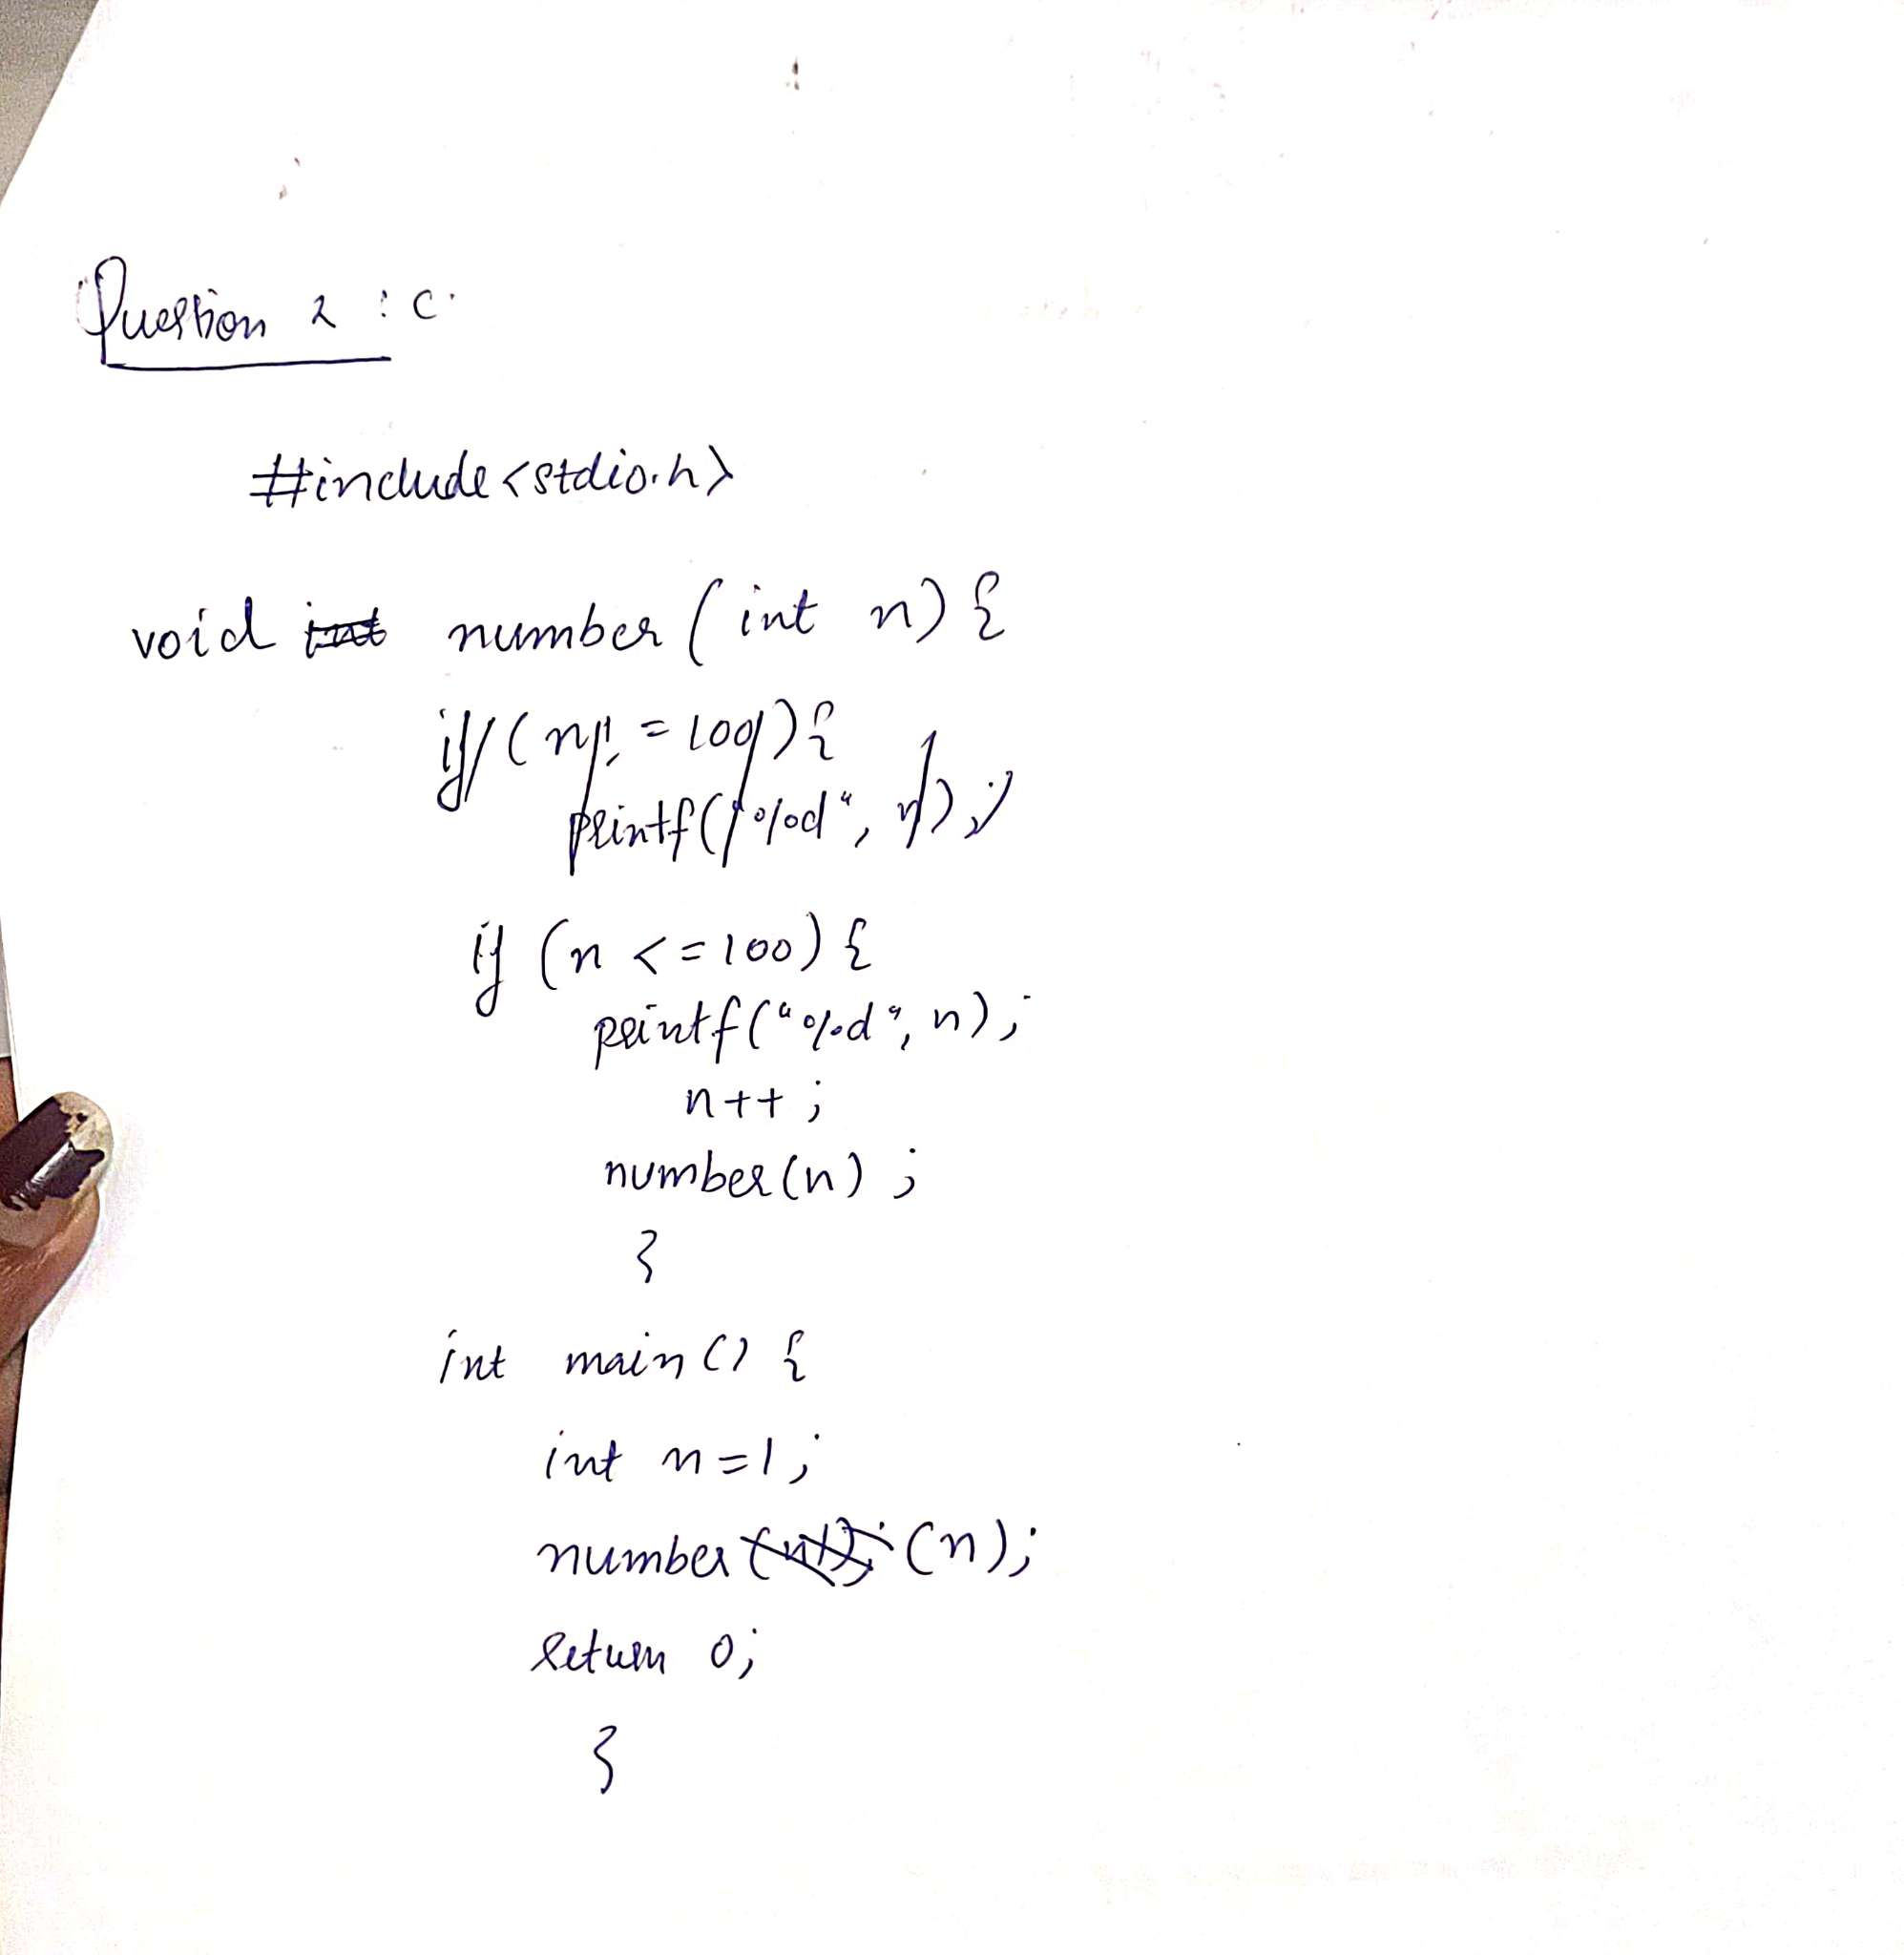 Question 2 : C.
#include <stdio.h>
void int number (int n) {
if (n != 100) {
printf("%d", n);
if (n <= 100) {
printf("%d", n);
n++ ;
number(n) ;
}
int main() {
int n=1;
number (n);
return 0;
}